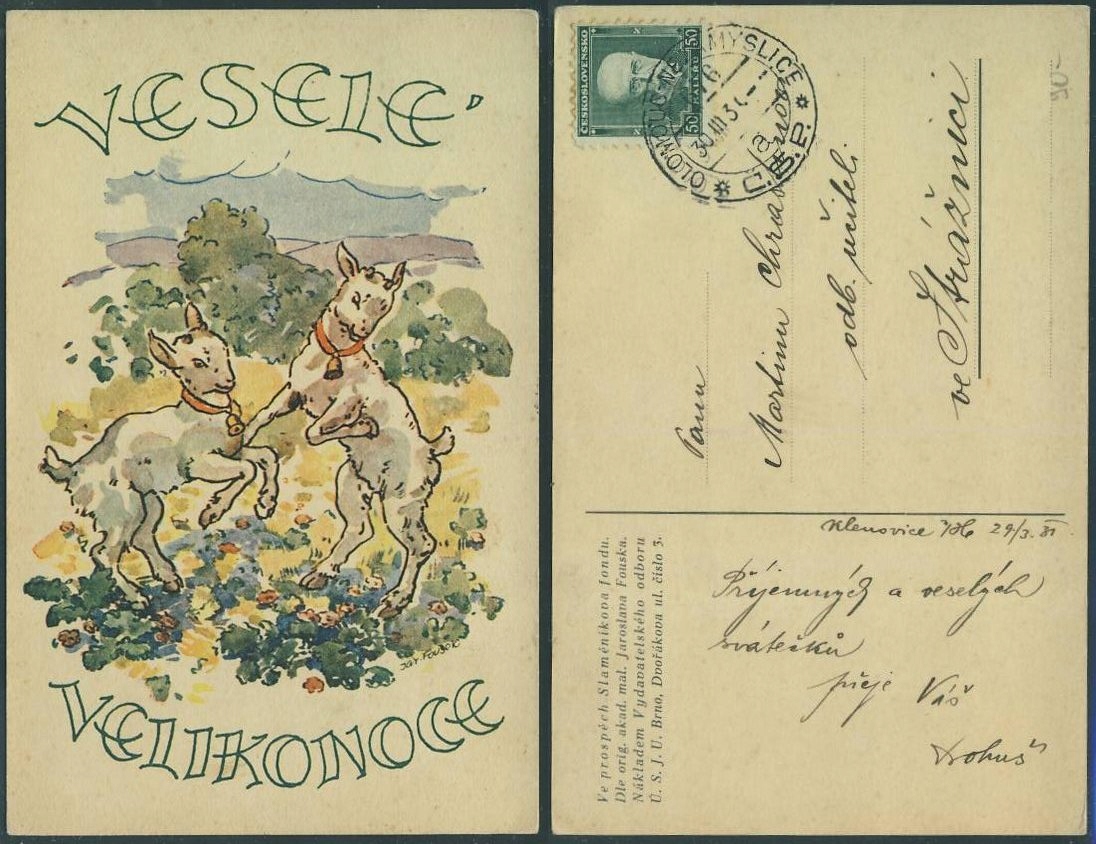 VESELÉ
VELIKONOCE
JAR. FOUSEK
ČESKOSLOVENSKO
50 50
HALÉŘŮ
OLOMOUC-NA
30.III.3
Č.S.P.
90-
Panu
Martinu
odb. učiteli
ve Strážnici
Klenovice 29/3. 31
Příjemných a veselých
svátečků
přeje Váš
Ve prospěch Slaměníkova fondu.
Dle orig. akad. mal. Jaroslava Fouska.
Nákladem Vydavatelského odboru
Ú. S. J. U. Brno, Dvořákova ul. číslo 3.